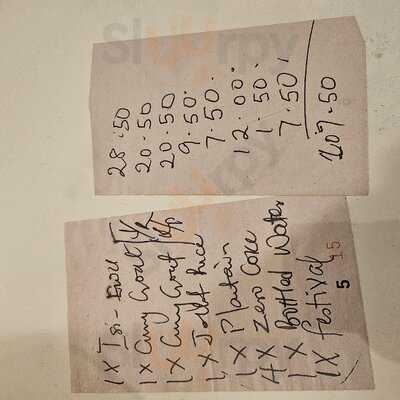 28.50
20.50
20.50
9.50
7.50
12.00
1.50
7.50
107.50
1 X Isi-Ewu
1 X Curry Goat
1 X Curry Goat
1 X Jollof Rice
1 X Plantain
4 X Zero Coke
1 X Bottled Water
1 X festival
15
5